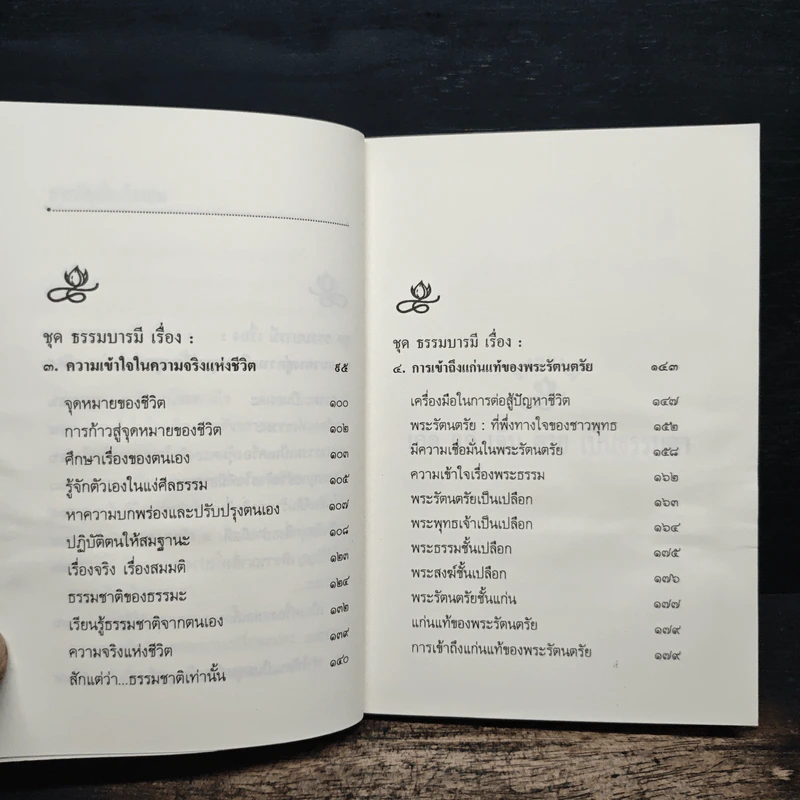 ชุด ธรรมบารมี เรื่อง :
๓. ความเข้าใจในความจริงแห่งชีวิต ๙๕
จุดหมายของชีวิต ๑๐๐
การก้าวสู่จุดหมายของชีวิต ๑๐๒
ศึกษาเรื่องของตนเอง ๑๐๓
รู้จักตัวเองในแง่ศีลธรรม ๑๐๕
หาความบกพร่องและปรับปรุงตนเอง ๑๐๗
ปฏิบัติตนให้สมฐานะ ๑๐๘
เรื่องจริง เรื่องสมมติ ๑๒๓
ธรรมชาติของธรรมะ ๑๒๔
เรียนรู้ธรรมชาติจากตนเอง ๑๓๒
ความจริงแห่งชีวิต ๑๓๙
สักแต่ว่า...ธรรมชาติเท่านั้น ๑๔๐
ชุด ธรรมบารมี เรื่อง :
๔. การเข้าถึงแก่นแท้ของพระรัตนตรัย ๑๔๓
เครื่องมือในการต่อสู้ปัญหาชีวิต ๑๔๗
พระรัตนตรัย : ที่พึ่งทางใจของชาวพุทธ ๑๕๒
มีความเชื่อมั่นในพระรัตนตรัย ๑๕๘
ความเข้าใจเรื่องพระธรรม ๑๖๒
พระรัตนตรัยเป็นเปลือก ๑๖๓
พระพุทธเจ้าเป็นเปลือก ๑๖๔
พระธรรมชั้นเปลือก ๑๗๕
พระสงฆ์ชั้นเปลือก ๑๗๖
พระรัตนตรัยชั้นแก่น ๑๗๗
แก่นแท้ของพระรัตนตรัย ๑๗๙
การเข้าถึงแก่นแท้ของพระรัตนตรัย ๑๗๙